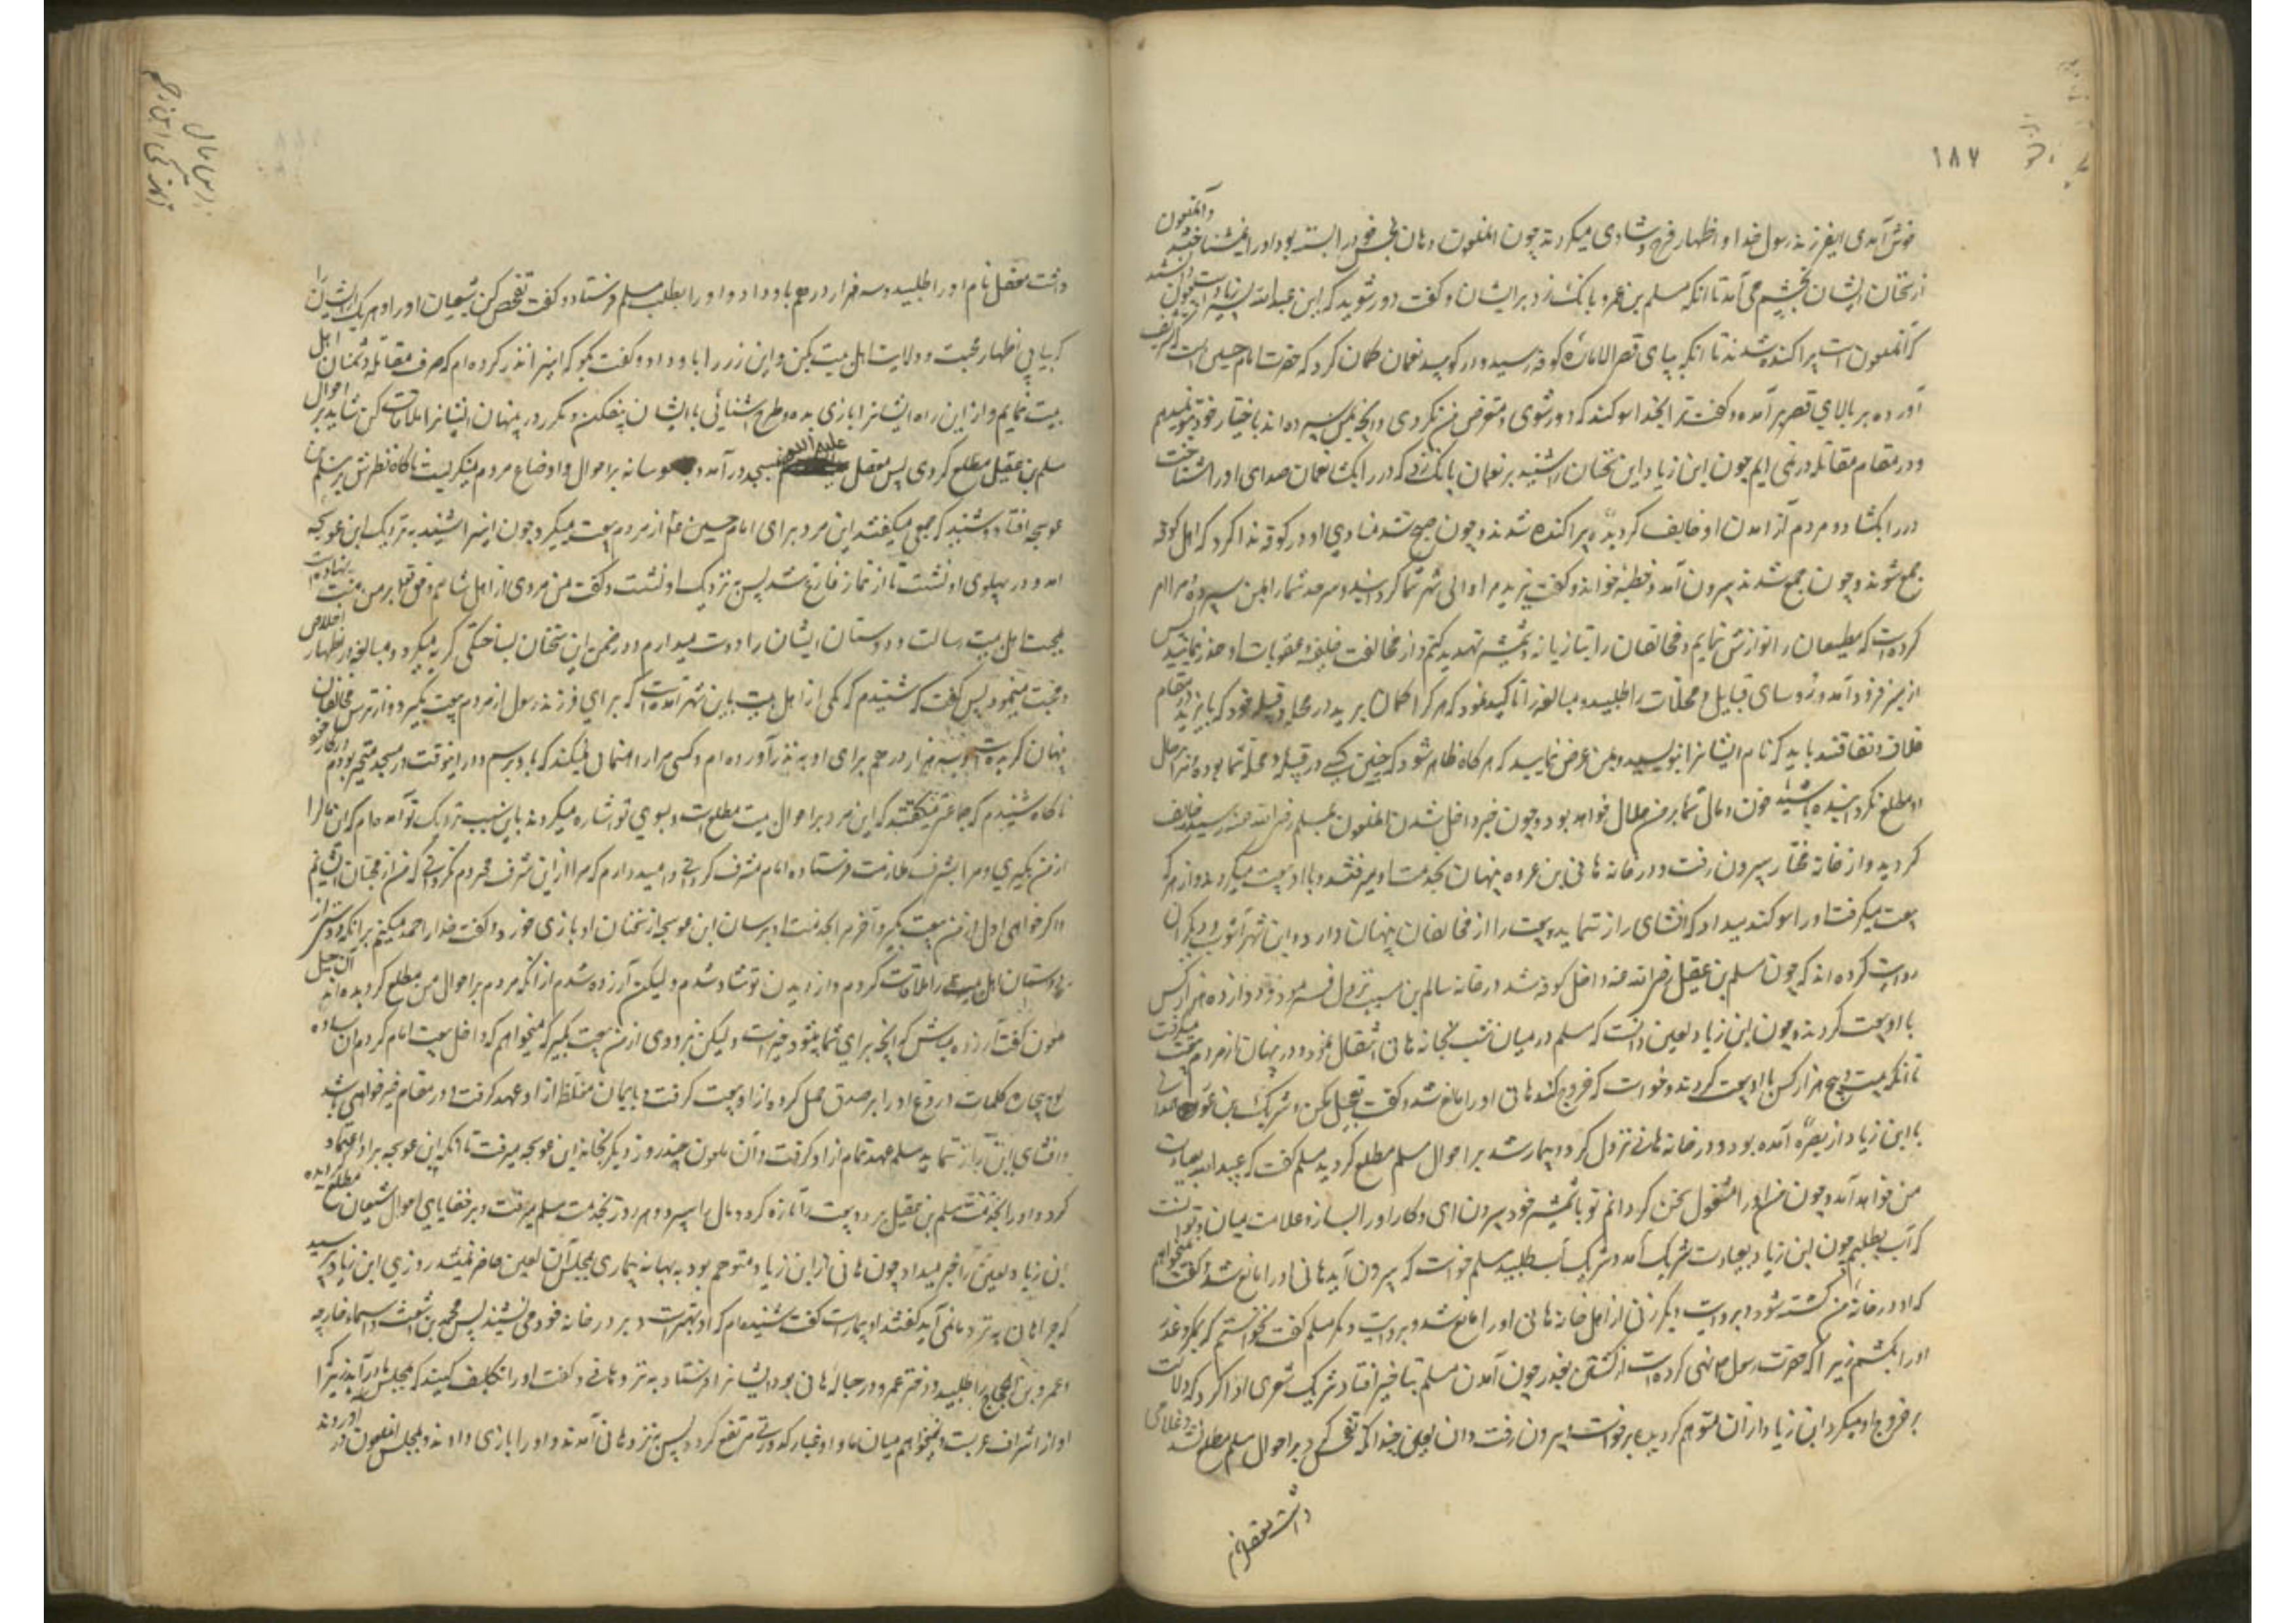 ۱۸۷
خوش آمدی ای فرزند رسول خدا و اظهار فرح و شادی میکردند چون آنملعون دهان نحس خود را بسته بود او را نمیشناختند و آنملعون
از سخنان ایشان بخشم می آمد تا آنکه مسلم بن عمرو بانک زد بر ایشان و گفت دور شوید که این عبدالله بن زیاد است چون دانستند
که آنملعون است پراکنده شدند تا آنکه بپای قصر الاماره کوفه رسید و در کوبید نعمان گمان کرد که حضرت امام حسین است تشریف
آورده بر بالای قصر بر آمد و گفت ترا بخدا سوگند که دور شوی و متعرض من نگردی و آنچه بمن سپرده اند باختیار خود بتو نمیدهم
و در مقام مقاتله در نمی ایم چون ابن زیاد این سخنان را شنید بر نعمان بانک زد که در را بکشا نعمان صدای او را شناخت
در را بکشاد و مردم از آمدن او خایف گردیده پراکنده شدند و چون صبح شد منادی او در کوفه ندا کرد که اهل کوفه
جمع شوند و چون جمع شدند بیرون آمد و خطبه خواند و گفت یزید مرا والی شهر شما گردانیده و سرحد شما را بمن سپرده و مرا امر
کرده است که مطیعان را نوازش نمایم و مخالفان را بتازیانه و شمشیر تهدید کنم و از مخالفت خلیفه و عقوبات او حذر نمایید پس
از منبر فرود آمد و رؤسای قبایل و محلات را طلبید و مبالغه و تاکید نمود که هر که را گمان برید در محله و قبیله خود که با یزید در مقام
خلاف و نفاقند باید که نام ایشانرا بنویسید و بمن عرض نمایید که هرگاه ظاهر شود که چنین کسی در قبیله و محله شما بوده و مرا بحال
او مطلع نگردانیده باشید خون و مال شما بر من حلال خواهد بود و چون خبر داخل شدن آنملعون بمسلم رضی الله عنه رسید خایف
گردید و از خانه مختار بیرون رفت و در خانه هانی بن عروه پنهان بخدمت او میرفتند و با او بیعت میکردند و از هر که
بیعت میگرفت او را سوگند میداد که افشای راز ننماید و بیعت را از مخالفان پنهان دارد و ابن شهرآشوب و دیگران
روایت کرده اند که چون مسلم بن عقیل رضی الله عنه داخل کوفه شد در خانه سالم بن مسیب نزول فرمود و دوازده هزار کس
با او بیعت کردند و چون ابن زیاد لعین دانست که مسلم در میان شب بخانه هانی انتقال نمود و در پنهان از مردم بیعت میگرفت
تا آنکه بیست و پنج هزار کس با او بیعت کردند و خواست که خروج کند هانی او را مانع شد و گفت تعجیل مکن و شریک بن
با ابن زیاد از بصره آمده بود و در خانه هانی نزول کرد و بیمار شد بر احوال مسلم مطلع گردید مسلم گفت که عبیدالله بعیادت
من خواهد آمد و چون من او را مشغول سخن گردانم تو با شمشیر خود بیرون ای و کار او را بساز و علامت میان من و تو آنست
که آب بطلبم چون ابن زیاد بعیادت شریک آمد و شریک آب طلبید مسلم خواست که بیرون آید هانی او را مانع شد و گفت نمیخواهم
که او در خانه من کشته شود و بروایت دیگر زنی از اهل خانه هانی او را مانع شد و بروایت دیگر مسلم گفت نخواستم که بمکر و غدر
او را بکشم زیرا که حضرت رسول ص نهی کرده است از کشتن بغدر چون آمدن مسلم بتاخیر افتاد شریک شعری ادا کرد که دلالت
بر خروج او میکرد ابن زیاد از آن متوهم گردیده برخاست و بیرون رفت و آن لعین چندانکه تفحص کرد بر احوال مسلم مطلع نشد و غلامی
داشت معقل نام
داشت معقل نام او را طلبید و سه هزار درهم باو داد و او را بطلب مسلم فرستاد و گفت تفحص کن شیعیان او را و هر یک از ایشان را
که بیابی اظهار محبت و ولایت اهل بیت بکن و این زر را باو داد و گفت بگو که اینرا نذر کرده ام که صرف مقاتله دشمنان اهل
بیت نمایم و از این راه ایشانرا بازی بده و طرح آشنائی با ایشان بیفکن و مکرر در پنهان ایشانرا ملاقات کن شاید بر احوال
مسلم بن عقیل مطلع گردی پس معقل علیه اللعنه بمسجد در آمد و جاسوسانه بر احوال و اوضاع مردم مینگریست ناگاه نظرش بر مسلم بن
عوسجه افتاد و شنید که جمعی میگفتند این مرد برای امام حسین ع از مردم بیعت میگیرد چون اینرا شنید به نزدیک ابن عوسجه
آمد و در پهلوی او نشست تا از نماز فارغ شد پس به نزدیک او نشست و گفت من مردی از اهل شامم و حق تعالی بر من منت نهاده است
بمحبت اهل بیت رسالت و دوستان ایشان را دوست میدارم و در ضمن این سخنان بساختگی گریه میکرد و مبالغه در اظهار اخلاص
و محبت مینمود پس گفت که شنیدم که یکی از اهل بیت باین شهر آمده است که برای فرزند رسول از مردم بیعت بگیرد و از ترس مخالفان
پنهان گردیده است و سه هزار درهم برای او به نذر آورده ام و کسی مرا راهنمائی نمیکند که باو برسم و در اینوقت در مسجد متحیر بودم در کار خود
ناگاه شنیدم که جماعتی میگفتند که این مرد بر احوال اهل بیت مطلع است و بسوی تو اشاره میکردند باین سبب نزدیک تو آمده ام که این مال را
از من بگیری و مرا بشرف ملازمت فرستاده امام مشرف گردانی و امیدوارم که مرا از این شرف محروم نگردانی که من از محبان ایشانم
و اگر خواهی اول از من بیعت بگیر و آخرم بخدمت او برسان ابن عوسجه از سخنان او بازی خورد و گفت خدا را حمد میکنم برآنکه دوستی از
دوستان اهل بیت را ملاقات کردم و از دیدن تو شاد شدم و لیکن آزرده شدم از آنکه مردم بر احوال من مطلع گردیده اند آن حیل
ملعون گفت آزرده مباش که آنچه برای شما میشود خیر است و لیکن بزودی از من بیعت بگیر که میخواهم که داخل بیعت امام گردم آن ساده
لوح بیچاره کلمات دروغ او را بر صدق حمل کرده از او بیعت گرفت و بایمان مغلظ از او عهد گرفت در مقام خیرخواهی باشد
و افشای این راز ننماید مسلم عهد تمام از او گرفت و آن ملعون چند روز دیگر بخانه ابن عوسجه میرفت تا آنکه ابن عوسجه بر او اعتماد
کرد و او را بخدمت مسلم بن عقیل برد و بیعت را تازه کرد و مال را سپرد و هر روز بخدمت مسلم میرفت و بر خفایای احوال شیعیان مطلع گردیده
ابن زیاد لعین را خبر میداد چون هانی از ابن زیاد متوهم بود به بهانه بیماری بمجلس آن لعین حاضر نمیشد روزی ابن زیاد پرسید
که چرا هانی به نزد ما نمی آید گفتند او بیمار است گفت شنیده ام که او بهتر است و بر در خانه خود می نشیند پس محمد بن اشعث و اسماء خارجه
و عمرو بن الحجاج را طلبید و دختر عمرو در حباله هانی بود ایشانرا فرستاد به نزد هانی و گفت او را تکلیف کنید که بمجلس ما در آید زیرا که
او از اشراف عربست و نمیخواهم میان ما و او غبار کدورتی مرتفع گردد پس به نزد هانی آمدند و او را بازی دادند و بمجلس آنملعون در آوردند